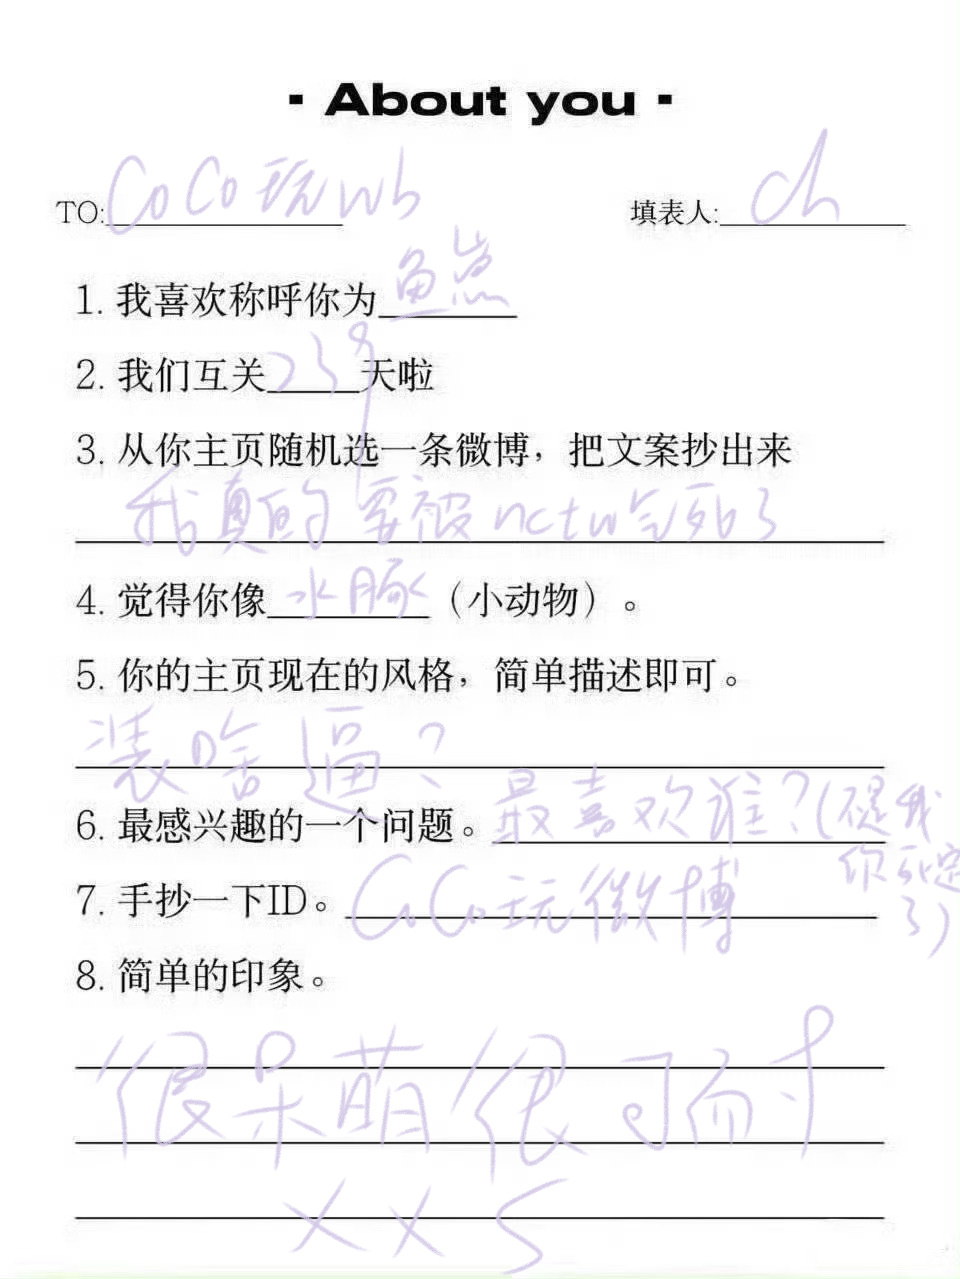 - About you -
TO: CoCo玩wb 填表人: ch
1. 我喜欢称呼你为
2. 我们互关239天啦
3. 从你主页随机选一条微博，把文案抄出来
我真的要被nctw气死了
4. 觉得你像水豚（小动物）。
5. 你的主页现在的风格，简单描述即可。
装啥逼？
6. 最感兴趣的一个问题。最喜欢谁？(提我
你死定
了)
7. 手抄一下ID。CoCo玩微博
8. 简单的印象。
很呆萌很可耐
xxs